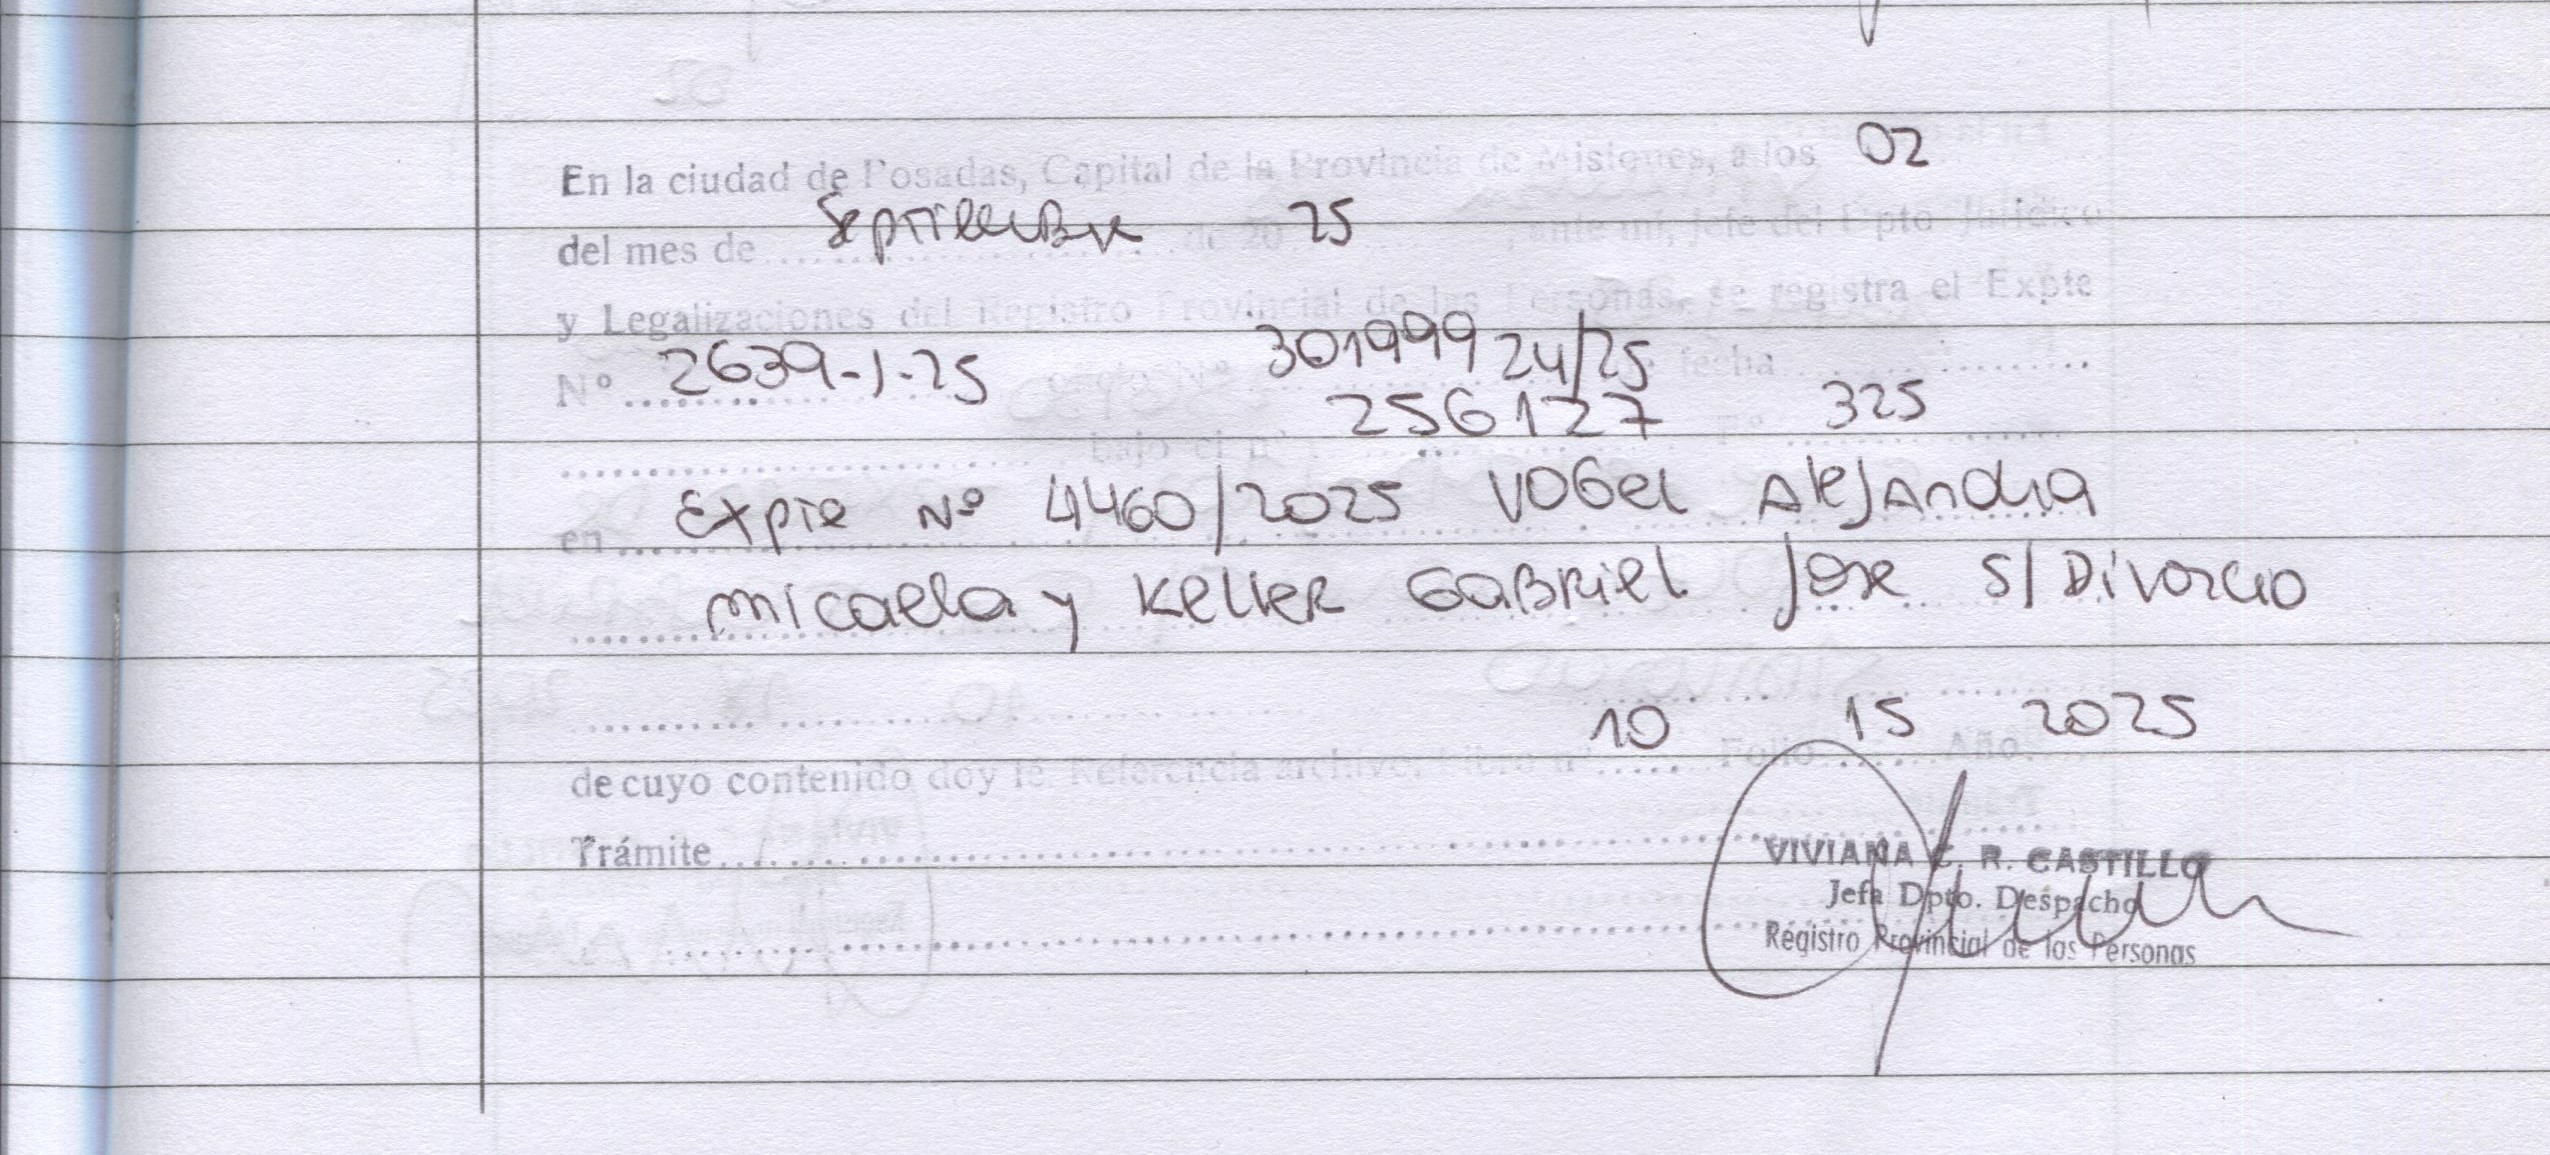 En la ciudad de Posadas, Capital de la Provincia de Misiones, a los 02
del mes de Septiembre de 20 25, ante mí, Jefe del Dpto Jurídico
y Legalizaciones del Registro Provincial de las Personas, se registra el Expte
Nº 2639-J-25 oficio Nº 30199924/25 fecha
bajo el nº 256127 Fº 325
en Expte Nº 4460/2025 VOGEL Alejandra
micaela y Keller Gabriel Jose S/ Divorcio
10 15 2025
de cuyo contenido doy fé. Referencia archivo. Libro nº Folio Año
Trámite
VIVIANA C. R. CASTILLO
Jefa Dpto. Despacho
Registro Provincial de las Personas